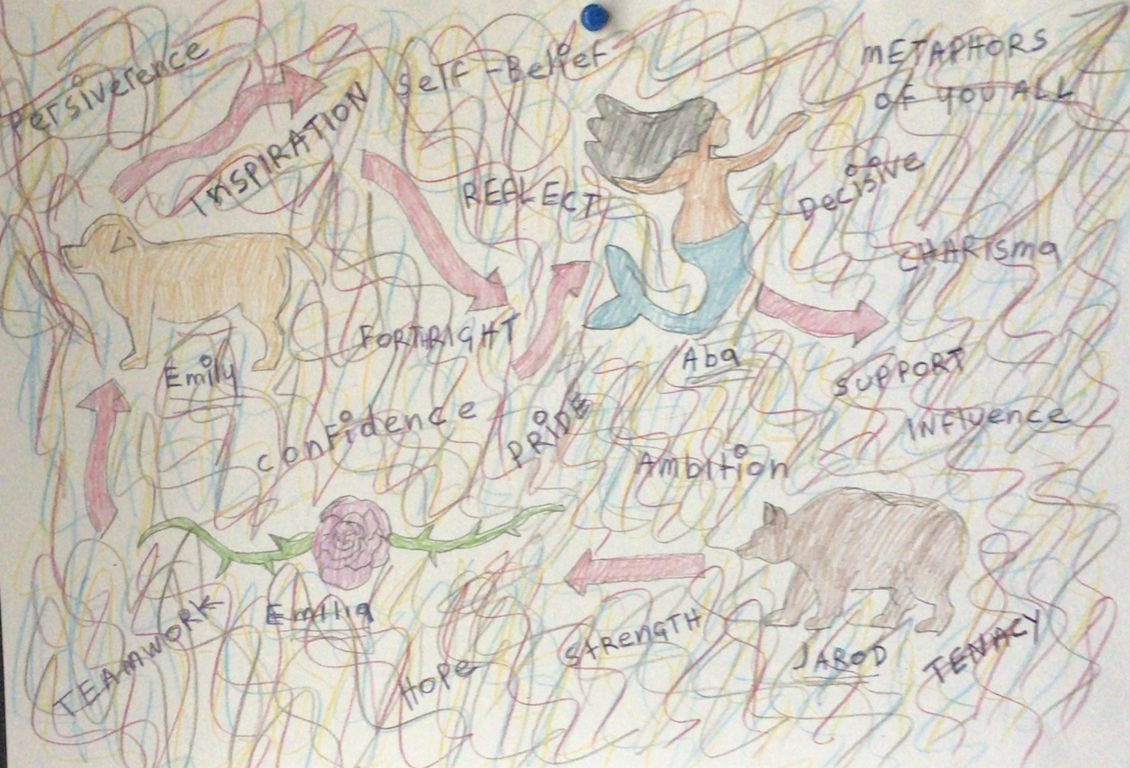 Persiverence
Self-Belief
METAPHORS
OF YOU ALL
INSPIRATION
REFLECT
Decisive
CHARISMA
FORTHRIGHT
Emily
Aba
SUPPORT
Confidence
PRIDE
INFLUENCE
Ambition
TEAMWORK
Emilia
HOPE
STRENGTH
JAROD
TENACY